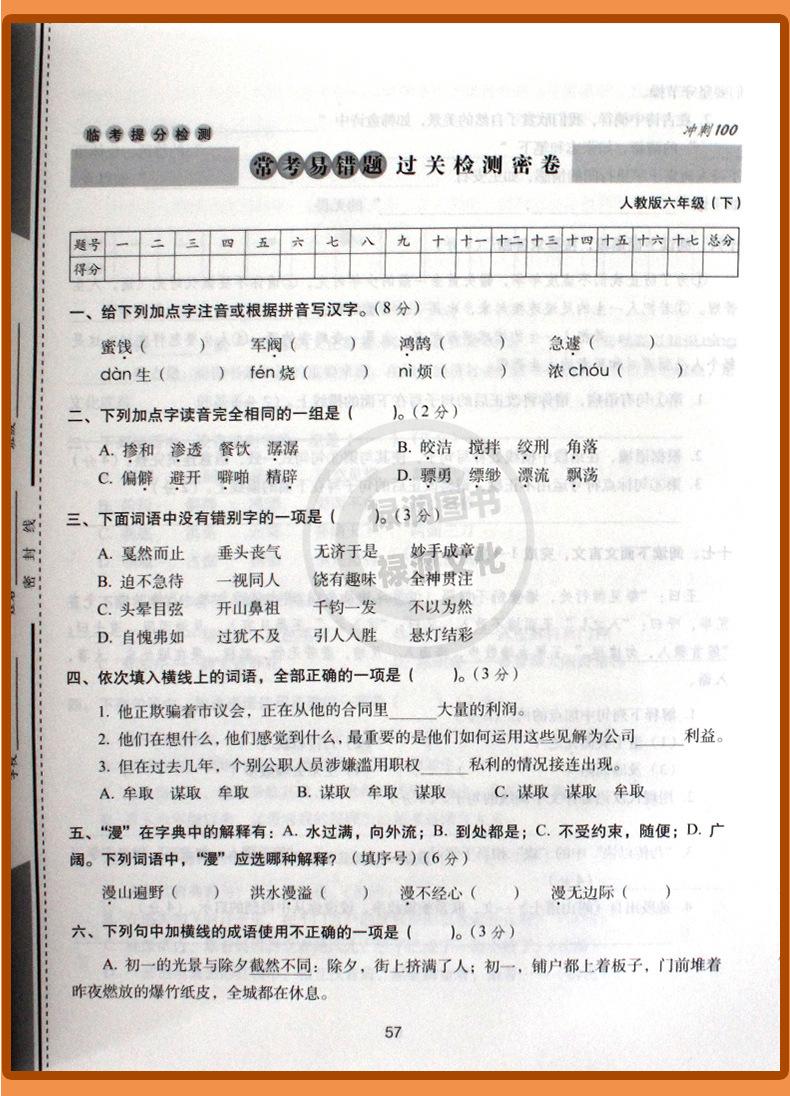 临考提分检测
冲刺100
常考易错题过关检测密卷
人教版六年级（下）
题号 一 二 三 四 五 六 七 八 九 十 十一 十二 十三 十四 十五 十六 十七 总分
得分
一、给下列加点字注音或根据拼音写汉字。（8分）
蜜饯（ ） 军阀（ ） 鸿鹄（ ） 急遽（ ）
dàn生（ ） fén烧（ ） nì烦（ ） 浓chóu（ ）
二、下列加点字读音完全相同的一组是（ ）。（2分）
A. 掺和 渗透 餐饮 潺潺 B. 皎洁 搅拌 绞刑 角落
C. 偏僻 避开 噼啪 精辟 D. 骠勇 缥缈 漂流 飘荡
三、下面词语中没有错别字的一项是（ ）。（3分）
A. 戛然而止 垂头丧气 无济于是 妙手成章
B. 迫不急待 一视同人 饶有趣味 全神贯注
C. 头晕目弦 开山鼻祖 千钧一发 不以为然
D. 自愧弗如 过犹不及 引人入胜 悬灯结彩
四、依次填入横线上的词语，全部正确的一项是（ ）。（3分）
1. 他正欺骗着市议会，正在从他的合同里______大量的利润。
2. 他们在想什么，他们感觉到什么，最重要的是他们如何运用这些见解为公司______利益。
3. 但在过去几年，个别公职人员涉嫌滥用职权______私利的情况接连出现。
A. 牟取 谋取 牟取 B. 谋取 牟取 谋取 C. 谋取 谋取 牟取
五、“漫”在字典中的解释有：A. 水过满，向外流；B. 到处都是；C. 不受约束，随便；D. 广
阔。下列词语中，“漫”应选哪种解释？（填序号）（6分）
漫山遍野（ ） 洪水漫溢（ ） 漫不经心（ ） 漫无边际（ ）
六、下列句中加横线的成语使用不正确的一项是（ ）。（3分）
A. 初一的光景与除夕截然不同：除夕，街上挤满了人；初一，铺户都上着板子，门前堆着
昨夜燃放的爆竹纸皮，全城都在休息。
57
密 封 线
学校
禄润图书
禄润文化